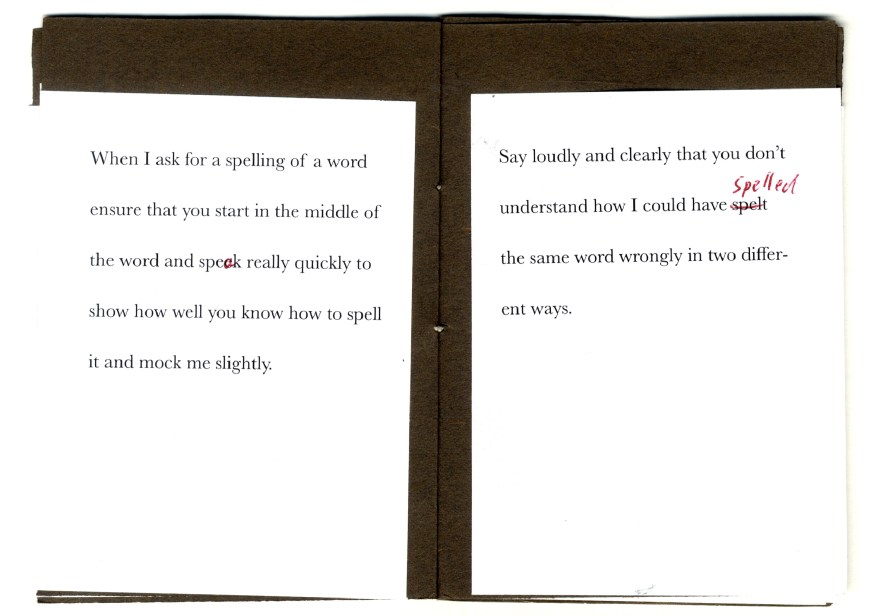 When I ask for a spelling of a word
ensure that you start in the middle of
the word and speak really quickly to
show how well you know how to spell
it and mock me slightly.
Say loudly and clearly that you don't
spelled
understand how I could have spelt
the same word wrongly in two differ-
ent ways.